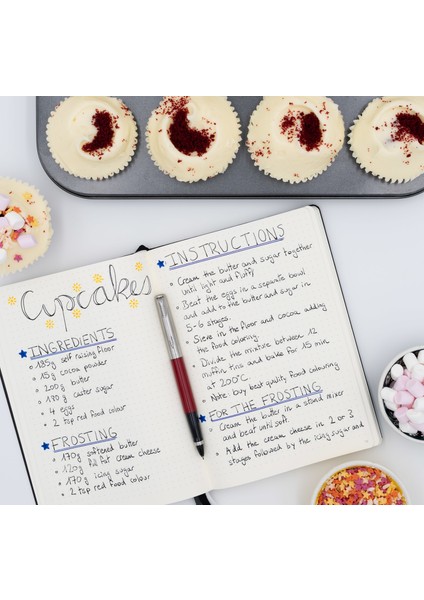 Cupcakes
INGREDIENTS
185g self raising flour
15g cocoa powder
200g butter
180g caster sugar
4 eggs
2 tsp red food colour
FROSTING
170g softened butter
120g full fat cream cheese
170g icing sugar
2 tsp red food colour
INSTRUCTIONS
Cream the butter and sugar together
until light and fluffy
Beat the eggs in a separate bowl
and add to the butter and sugar in
5-6 stages.
Sieve in the floor and cocoa adding
the food colouring
Divide the mixture between 12
muffin tins and bake for 15 min
at 200°C
Note: buy best quality food colouring
FOR THE FROSTING
Cream the butter in a stand mixer
and beat until soft.
Add the cream cheese in 2 or 3
stages followed by the icing sugar and